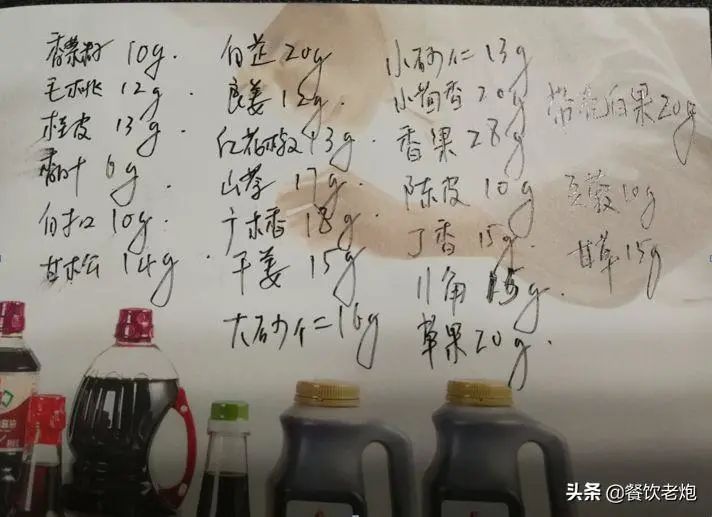 香菜籽 10g.
毛桃 12g.
桂皮 13g.
香叶 6g.
白扣 10g.
甘松 14g.
白芷 20g
良姜 12g.
红花椒 13g.
山奈 17g.
广木香 18g.
干姜 15g
大砂仁 16g
小砂仁 13g
小茴香 20g
香果 28g
陈皮 10g
丁香 15g.
八角 15g.
草果 20g.
带壳白果 20g
豆蔻 10g
甘草 15g
头条 @餐饮老炮